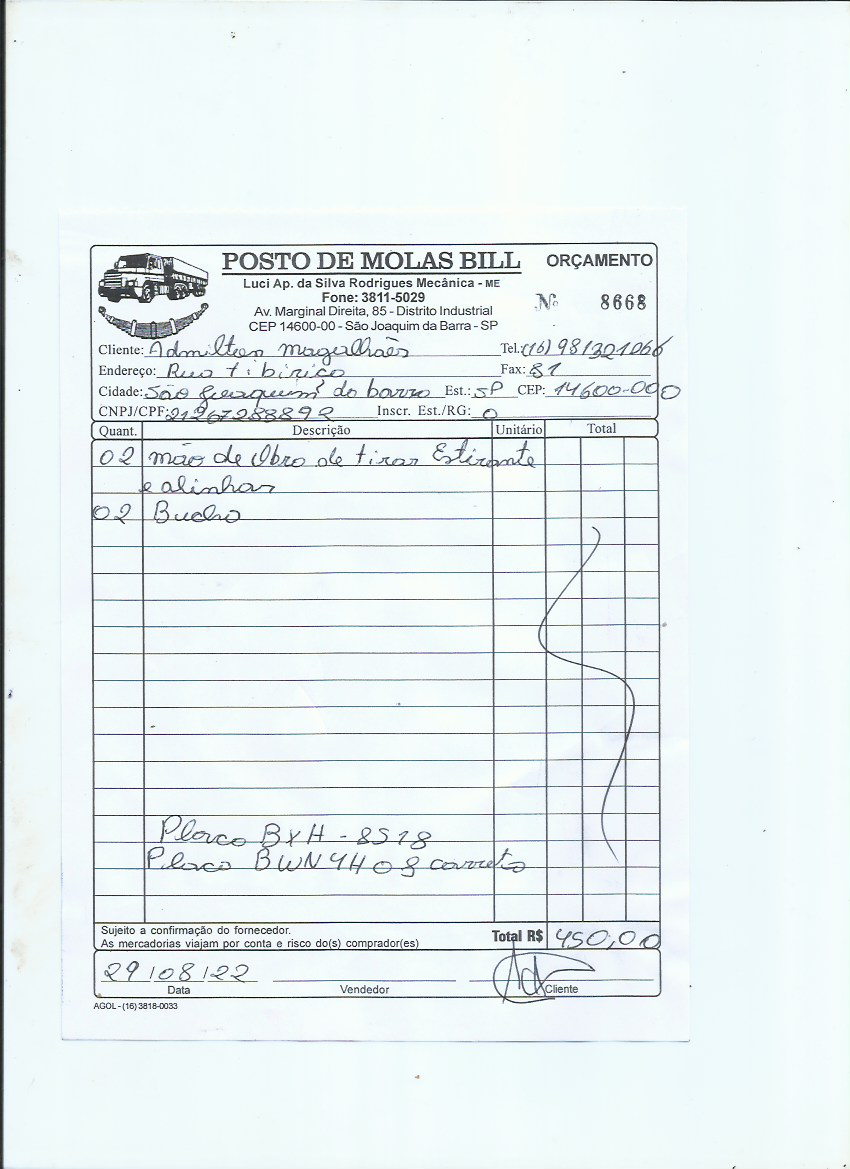 POSTO DE MOLAS BILL
ORÇAMENTO
Luci Ap. da Silva Rodrigues Mecânica - ME
Fone: 3811-5029
Nº 8668
Av. Marginal Direita, 85 - Distrito Industrial
CEP 14600-00 - São Joaquim da Barra - SP
Cliente: Admilton Magalhães Tel.: (16) 981321066
Endereço: Rua tibiriça Fax: 81
Cidade: São Joaquim da barra Est.: SP CEP: 14600-000
CNPJ/CPF: 21267288892 Inscr. Est./RG: 0
Quant. Descrição Unitário Total
02 mão de Obra de tirar Estirante
e alinhar
02 Bucha
Placa BXH - 8518
Placa BWN 4408 carreta
Sujeito a confirmação do fornecedor.
As mercadorias viajam por conta e risco do(s) comprador(es)
Total R$ 450,00
29/08/22
Data Vendedor Cliente
AGOL - (16) 3818-0033